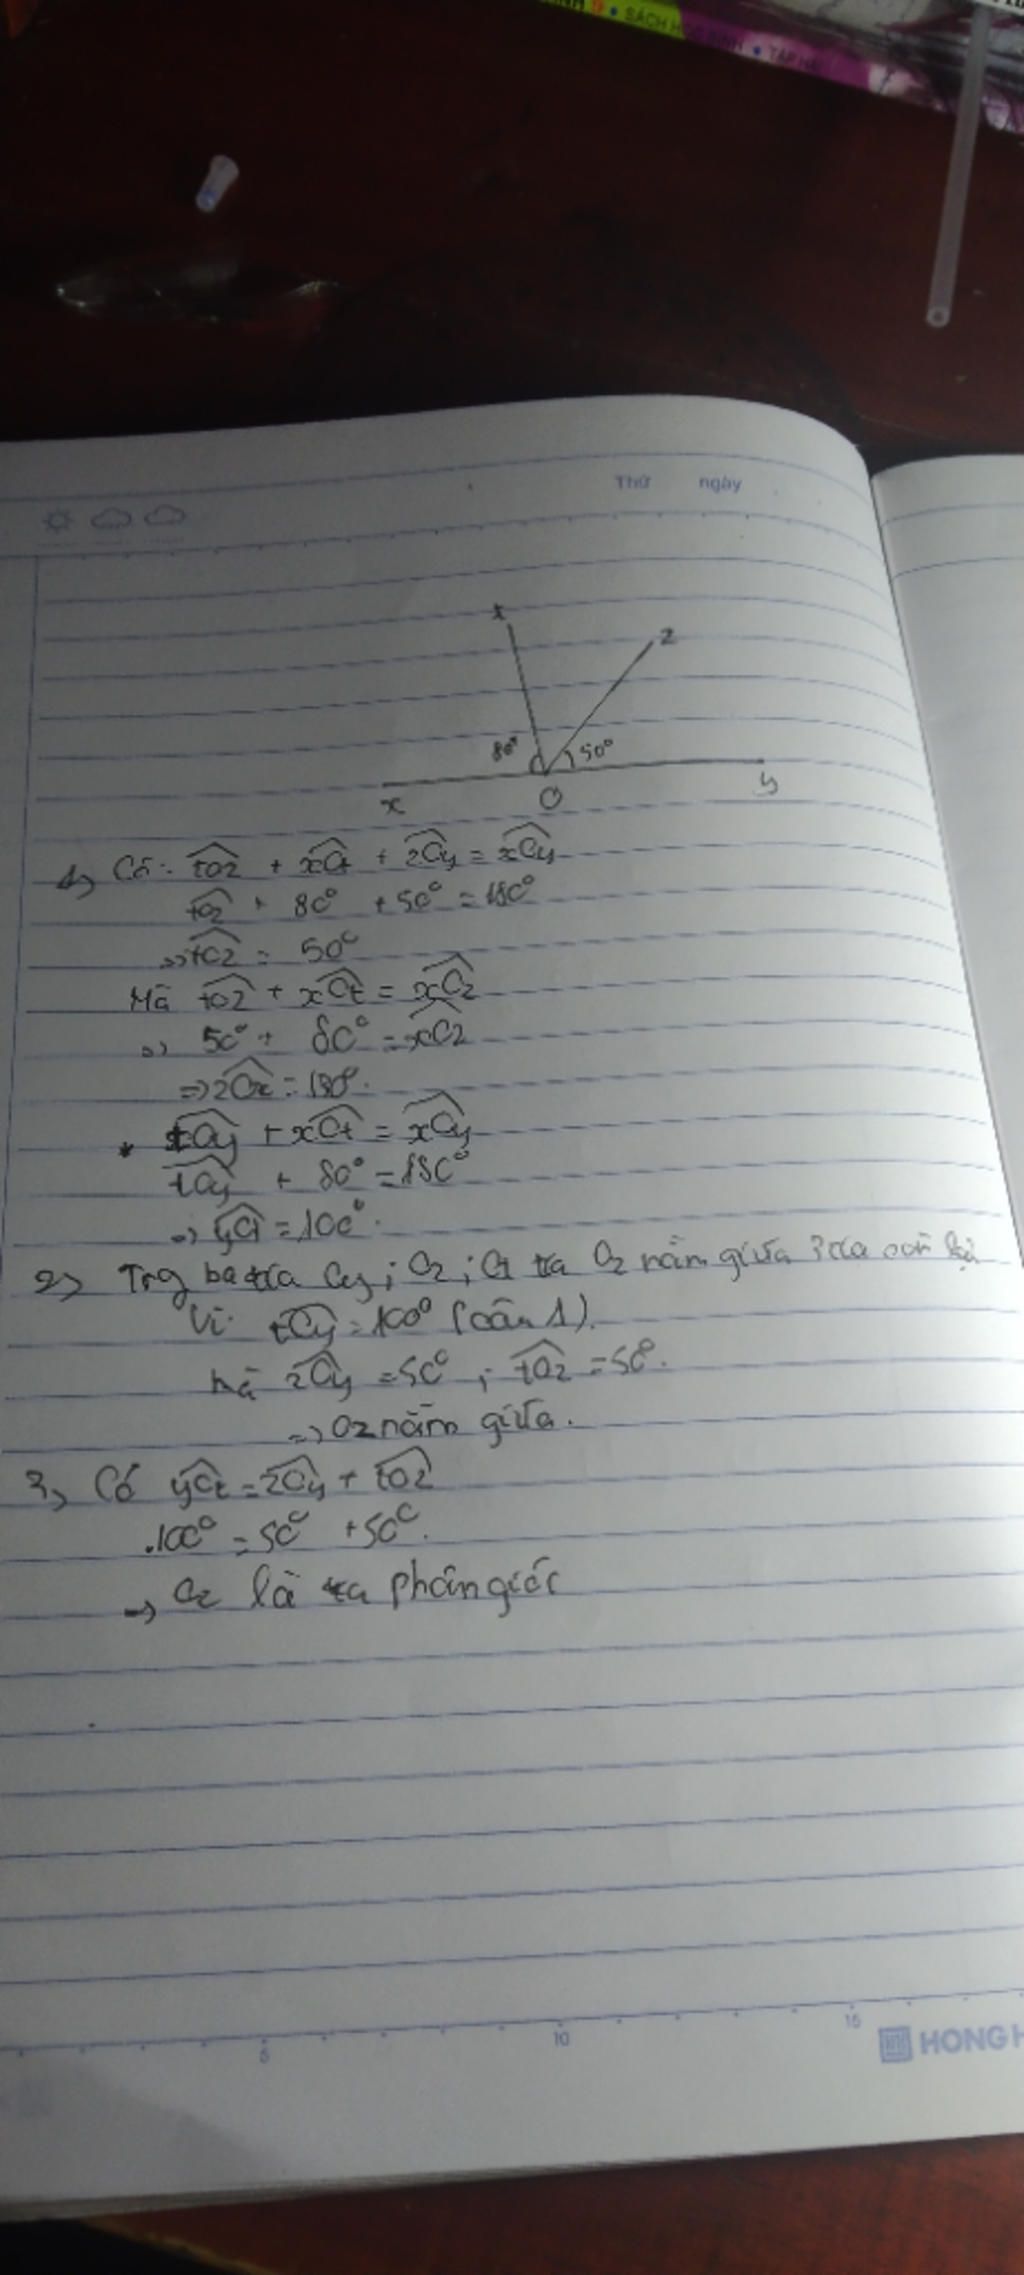 SÁCH HỌC SINH • TẬP HAI
Thứ ngày
t
z
80° 50°
x O y
1, Có: tOz + xOt + zOy = xOy
tOz + 80° + 50° = 180°
=> tOz = 50°
Mà tOz + xOt = xOz
=> 50° + 80° = xOz
=> zOx = 130°.
* tOy + xOt = xOy
tOy + 80° = 180°
=> yOt = 100°.
2, Trg ba tia Oy; Oz; Ot tia Oz nằm giữa 2 tia còn lại
Vì tOy = 100° (câu 1).
Mà zOy = 50°; tOz = 50°.
=> Oz nằm giữa.
3, Có yOt = zOy + tOz
100° = 50° + 50°.
=> Oz là tia phân giác
5 10 15
HONG H